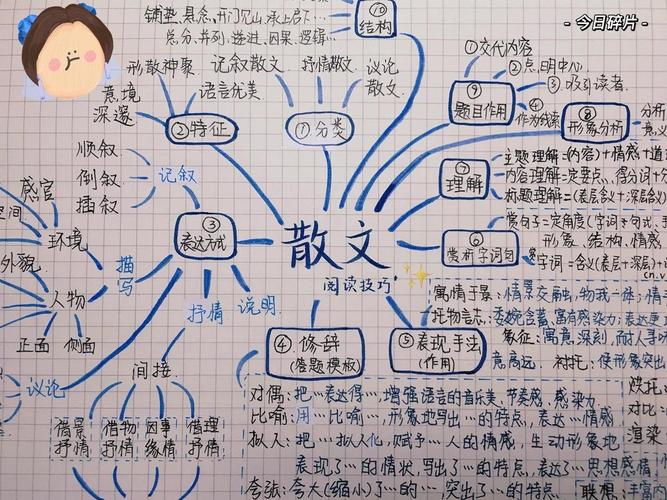 铺垫、悬念、开门见山、承上启下…
总分、并列、递进、因果、逻辑…
⑩
结构
- 今日碎片 -
形散神聚
记叙散文
抒情散文
议论
散文
语言优美
意境
深邃
②特征
①分类
①交代内容
②点明中心
③吸引读者
④
作为线索
⑨
题目作用
⑧
形象分析
分析
意义
顺叙
倒叙
插叙
记叙
⑦
理解
主题理解=(内容)+情感+道
内容理解=定要点、得分词+分
标题理解=(表层含义+深层含
③
表达方式
散文
阅读技巧
⑥
赏析字词句
赏句子=定角度(字词、句式、
形象、结构、情感
字词=含义(表层+深层)+
感官
空间
环境
外貌
人物
正面
侧面
描写
抒情
说明
议论
间接
借景
抒情
借物
抒情
因事
缘情
借理
抒情
④修辞
(答题模板)
⑤表现手法
(作用)
寓情于景:情景交融,物我一体;情
托物言志:委婉含蓄,富有感染力;表达更
象征:寓意深刻,耐人寻
意高远.衬托:使形象突出
烘托
对比
渲染
对偶:把…表达得…,增强语言的音乐美、节奏感、感染力
比喻:用…比喻…,形象地写出…的特点,表达…情感
拟人:把…拟人化,赋予…人的情感,生动形象地
表现了…的情状,写出了…的特点,表达了…思想感情
夸张:夸大(缩小)了…的…,突出了…的特点
联想:丰富内